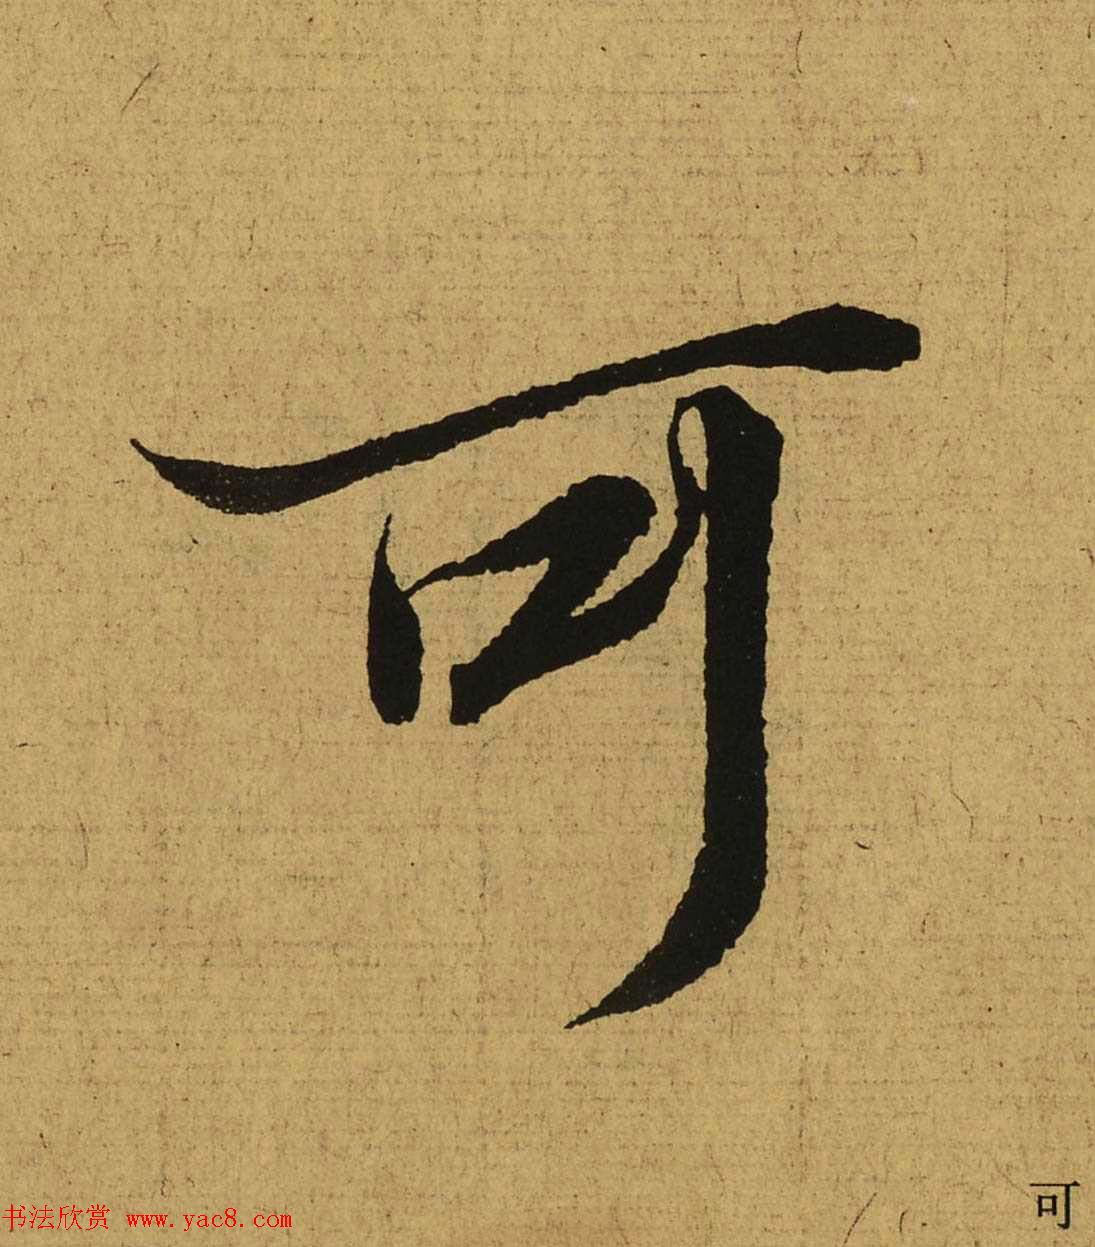 可
可
书法欣赏 www.yac8.com